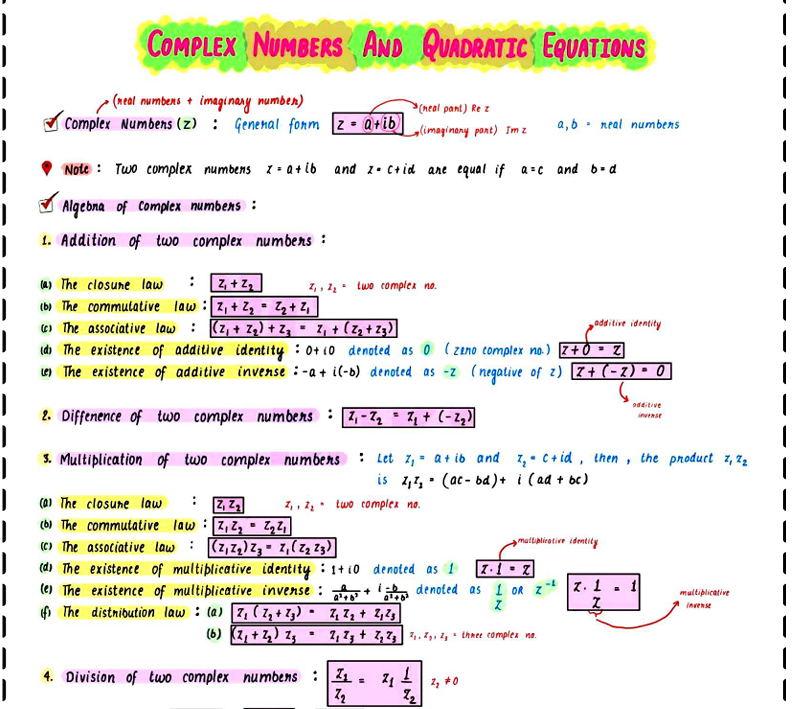 COMPLEX NUMBERS AND QUADRATIC EQUATIONS
(real numbers + imaginary number)
Complex Numbers (z) : General form z = a+ib a, b = real numbers
(real part) Re z
(imaginary part) Im z
Note : Two complex numbers z = a+ib and z = c+id are equal if a=c and b=d
Algebra of Complex numbers :
1. Addition of two complex numbers :
(a) The closure law : z₁ + z₂ z₁, z₂ = two complex no.
(b) The commutative law : z₁ + z₂ = z₂ + z₁
(c) The associative law : (z₁ + z₂) + z₃ = z₁ + (z₂ + z₃)
additive identity
(d) The existence of additive identity : 0+i0 denoted as 0 (zero complex no.) z+0 = z
(e) The existence of additive inverse : -a + i(-b) denoted as -z (negative of z) z + (-z) = 0
additive inverse
2. Difference of two complex numbers : z₁ - z₂ = z₁ + (-z₂)
3. Multiplication of two complex numbers : Let z₁ = a+ib and z₂ = c+id, then, the product z₁z₂
is z₁z₂ = (ac-bd) + i(ad+bc)
(a) The closure law : z₁z₂ z₁, z₂ = two complex no.
(b) The commutative law : z₁z₂ = z₂z₁
(c) The associative law : (z₁z₂)z₃ = z₁(z₂z₃)
multiplicative identity
(d) The existence of multiplicative identity : 1+i0 denoted as 1 z.1 = z
(e) The existence of multiplicative inverse : a/(a²+b²) + i -b/(a²+b²) denoted as 1/z OR z⁻¹ z. 1/z = 1
multiplicative inverse
(f) The distribution law : (a) z₁(z₂+z₃) = z₁z₂ + z₁z₃
(b) (z₁+z₂)z₃ = z₁z₃ + z₂z₃ z₁, z₂, z₃ = three complex no.
4. Division of two complex numbers : z₁/z₂ = z₁ 1/z₂ z₂ ≠ 0